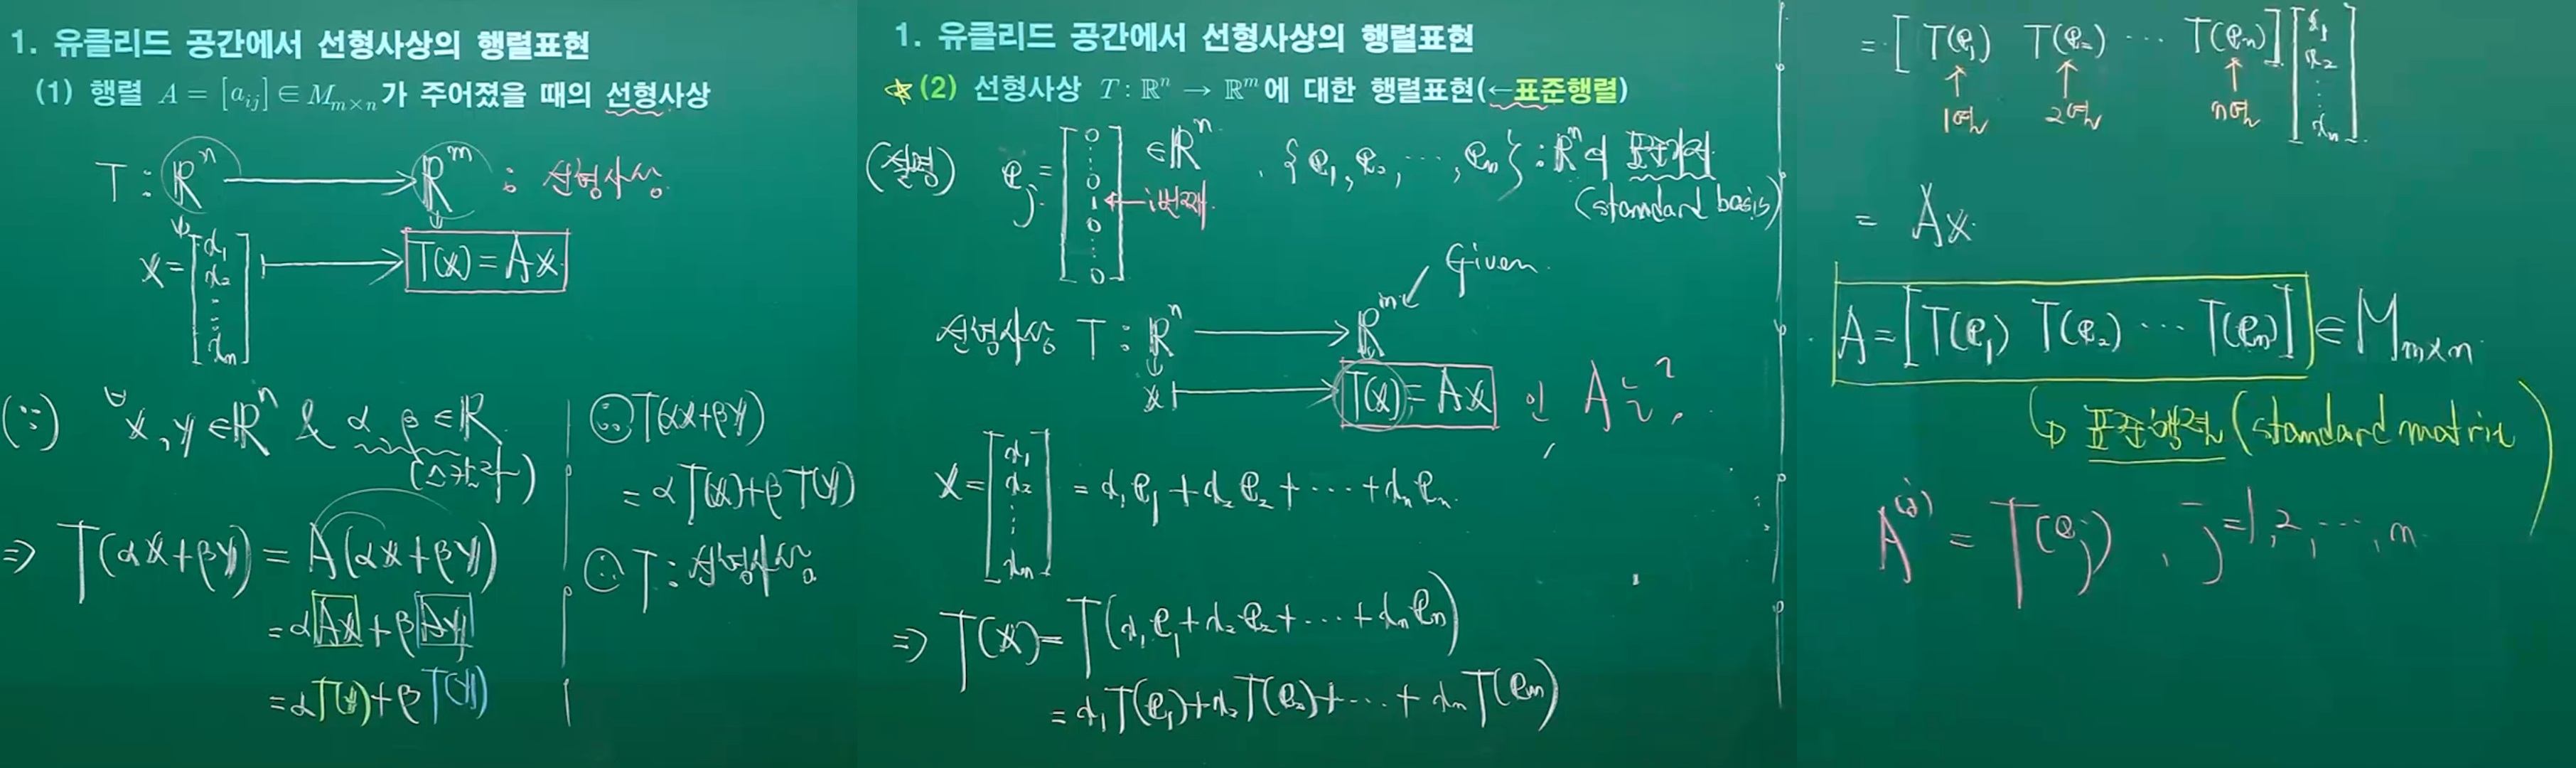 1. 유클리드 공간에서 선형사상의 행렬표현
(1) 행렬 A = [a_{ij}] ∈ M_{m×n}가 주어졌을 때의 선형사상
T : ℝ^n → ℝ^m : 선형사상
x = [x_1 x_2 ⋮ x_n] ↦ T(x) = Ax
(∵) ∀x, y ∈ ℝ^n & α, β ∈ ℝ
(스칼라)
⇒ T(αx+βy) = A(αx+βy)
= αAx + βAy
= αT(x) + βT(y)
∴ T(αx+βy)
= αT(x)+βT(y)
∴ T : 선형사상
1. 유클리드 공간에서 선형사상의 행렬표현
☆(2) 선형사상 T : ℝ^n → ℝ^m에 대한 행렬표현(←표준행렬)
(설명) e_j = [0 ⋮ 0 1 0 ⋮ 0] ∈ ℝ^n , {e_1, e_2, ⋯, e_n} : ℝ^n의 표준기저
←j번째
(standard basis)
Given
선형사상 T : ℝ^n → ℝ^m
x ↦ T(x) = Ax 인 A는?
x = [x_1 x_2 ⋮ x_n] = x_1e_1 + x_2e_2 + ⋯ + x_ne_n
⇒ T(x) = T(x_1e_1 + x_2e_2 + ⋯ + x_ne_n)
= x_1T(e_1) + x_2T(e_2) + ⋯ + x_nT(e_n)
= [T(e_1) T(e_2) ⋯ T(e_n)] [x_1 x_2 ⋮ x_n]
↑ ↑ ↑
1열 2열 n열
= Ax
A = [T(e_1) T(e_2) ⋯ T(e_n)] ∈ M_{m×n}
↳ 표준행렬 (standard matrix)
A^{(j)} = T(e_j) , j = 1, 2, ⋯, n